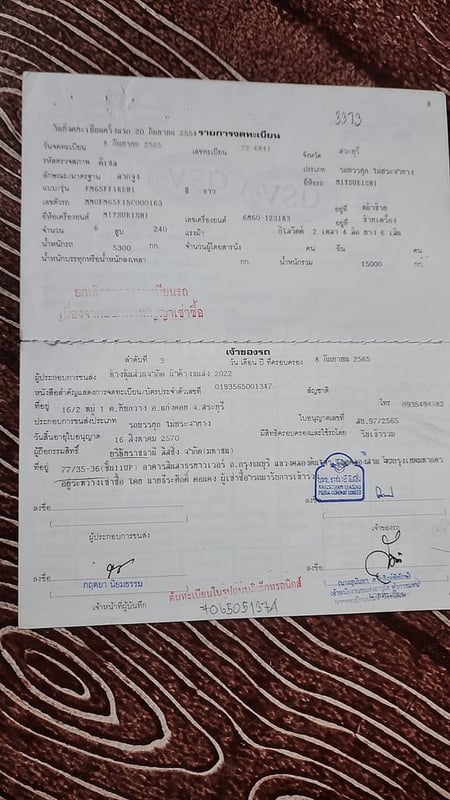 3373
8
วันที่จดทะเบียนครั้งแรก 20 กันยายน 2554 รายการจดทะเบียน
วันจดทะเบียน 8 กันยายน 2565 เลขทะเบียน 72-6841 จังหวัด สระบุรี
รหัสตรวจสภาพ ดีเซล ประเภท รถบรรทุก ไม่ประจำทาง
ลักษณะ/มาตรฐาน ลากจูง ยี่ห้อรถ MITSUBISHI
แบบ/รุ่น FM65FF1RDH1 สี ขาว
เลขตัวรถ MMGFM65F1SC000163 อยู่ที่ หน้าซ้าย
ยี่ห้อเครื่องยนต์ MITSUBISHI เลขเครื่องยนต์ 6M60-123183 อยู่ที่ ซ้ายเครื่อง
จำนวน 6 สูบ 240 แรงม้า กิโลวัตต์ 2 เพลา 4 ล้อ ยาง 6 เส้น
น้ำหนักรถ 5300 กก. จำนวนผู้โดยสารนั่ง คน ยืน คน
น้ำหนักบรรทุกหรือน้ำหนักลงเพลา กก. น้ำหนักรวม 15000 กก.
เจ้าของรถ
ลำดับที่ 3 วัน เดือน ปี ที่ครอบครอง 8 กันยายน 2565
ผู้ประกอบการขนส่ง 2022
หนังสือสำคัญแสดงการจดทะเบียน/บัตรประจำตัวเลขที่ 0193565001347 สัญชาติ
ที่อยู่ 16/2 หมู่ 1 ต.ทับกวาง อ.แก่งคอย จ.สระบุรี โทร 0935494982
ประกอบการขนส่งประเภท รถบรรทุก ไม่ประจำทาง ใบอนุญาตเลขที่ สบ.97/2565
วันสิ้นอายุใบอนุญาต 16 สิงหาคม 2570 มีสิทธิครอบครองและใช้รถโดย
ผู้ถือกรรมสิทธิ์ บริษัทราชธานี ลิสซิ่ง จำกัด(มหาชน)
ที่อยู่ 77/35-36(ชั้น11UP) อาคารสินสาธรทาวเวอร์ ถ.กรุงธนบุรี
บมจ. ราชธานี ลิสซิ่ง
RATCHTHANI LEASING
PUBLIC COMPANY LIMITED
ลงชื่อ ลงชื่อ
ผู้ประกอบการขนส่ง เจ้าของรถ
ลงชื่อ ลงชื่อ
กฤตยา นิยมธรรม
ต้นทะเบียนในรูปแบบอิเล็กทรอนิกส์
เจ้าหน้าที่ผู้บันทึก
7065051371